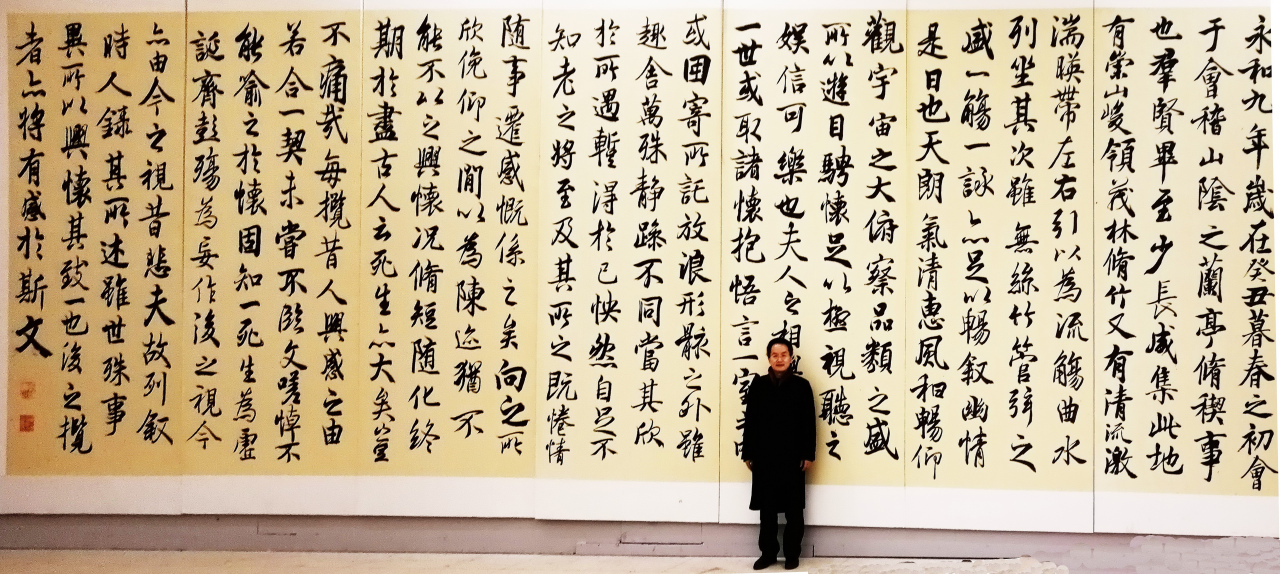 永和九年歲在癸丑暮春之初會
于會稽山陰之蘭亭脩稧事
也羣賢畢至少長咸集此地
有崇山峻領茂林脩竹又有清流激
湍暎帶左右引以為流觴曲水
列坐其次雖無絲竹管弦之
盛一觴一詠亦足以暢叙幽情
是日也天朗氣清惠風和暢仰
觀宇宙之大俯察品類之盛
所以遊目騁懷足以極視聽之
娛信可樂也夫人之相與
一世或取諸懷抱悟言一室
或因寄所託放浪形骸之外雖
趣舍萬殊静躁不同當其欣
於所遇蹔得於己怏然自足不
知老之將至及其所之既惓情
隨事遷感慨係之矣向之所
欣俛仰之閒以為陳迹猶不
能不以之興懷況脩短随化終
期於盡古人云死生亦大矣豈
不痛哉每攬昔人興感之由
若合一契未嘗不臨文嗟悼不
能喻之於懷固知一死生為虛
誕齊彭殤為妄作後之視今
亦由今之視昔悲夫故列叙
時人錄其所述雖世殊事
異所以興懷其致一也後之攬
者亦將有感於斯文